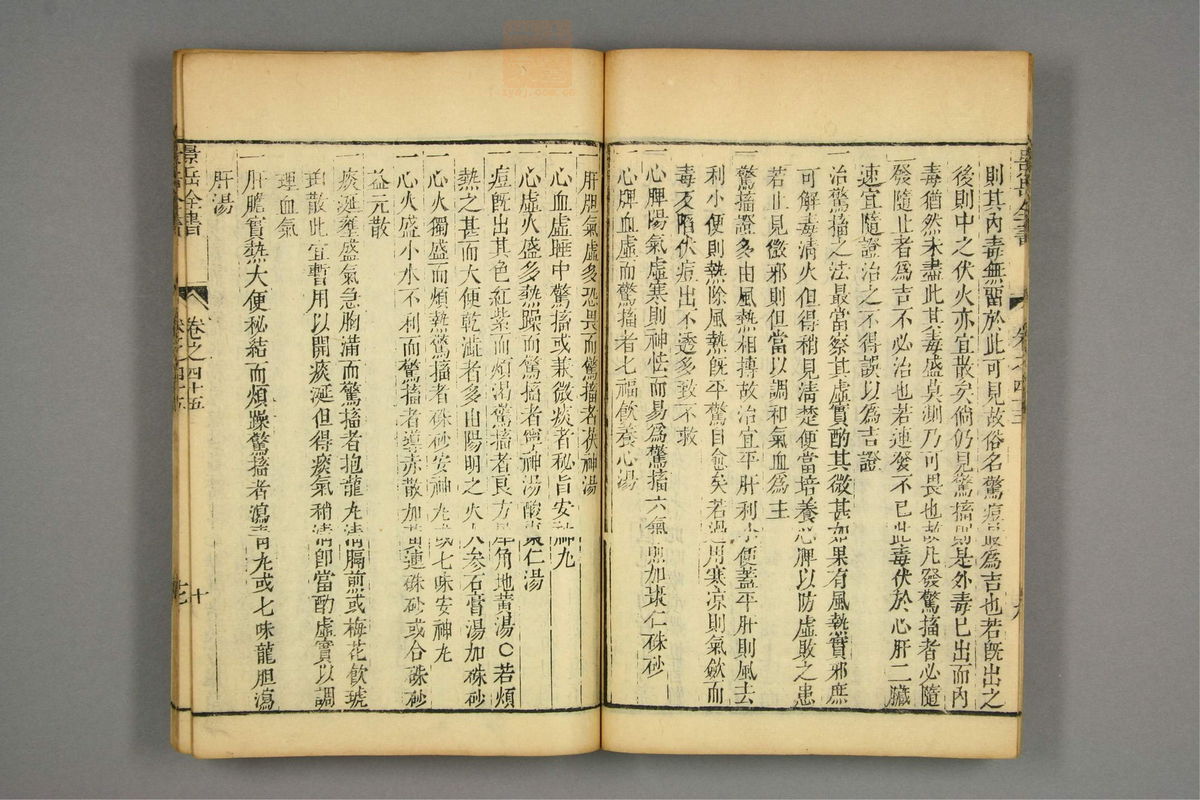 則其內毒無畱於此可見故俗名驚痘最爲吉也若旣出之
後則中之伏火亦宜散矣倘仍見驚搐則是外毒已出而內
毒猶然未盡此其毒盛莫測乃可畏也故凡發驚搐者必隨
發隨止者爲吉不必治也若連發不已此毒伏於心肝二臟
速宜隨證治之不得誤以爲吉證
一治驚搐之法最當察其虛實酌其微甚如果有風熱實邪庶
可解毒淸火但得稍見淸楚便當培養心脾以防虛敗之患
若止見微邪則但當以調和氣血爲主
一驚搐證多由風熱相摶故治宜平肝利小便蓋平肝則風去
利小便則熱除風熱旣平驚自愈矣若過用寒凉則氣斂而
毒反陷伏痘出不透多致不救
一心脾陽氣虛寒則神怯而易爲驚搐六氣煎加棗仁硃砂
一心脾血虛而驚搐者七福飲養心湯
一肝胆氣虛多恐畏而驚搐者茯神湯
一心血虛睡中驚搐或兼微痰者秘旨安神丸
一心虛火盛多熱躁而驚搐者寧神湯酸棗仁湯
一痘旣出其色紅紫而煩渴驚搐者良方犀角地黃湯○若煩
熱之甚而大便乾澁者多由陽明之火人參石膏湯加硃砂
一心火獨盛而煩熱驚搐者硃砂安神丸或七味安神丸
一心火盛小水不利而驚搐者導赤散加黃連硃砂或合硃砂
益元散
一痰涎壅盛氣急胸滿而驚搐者抱龍丸淸膈煎或梅花飲琥
珀散此宜暫用以開痰涎但得痰氣稍淸卽當酌虛實以調
理血氣
一肝膽實熱大便秘結而煩躁驚搐者瀉靑丸或七味龍胆瀉
肝湯
景岳全書
卷之四十五
十